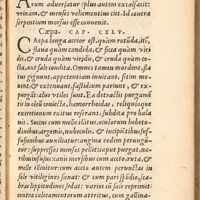 rum aduersatur: plus autem excalfacit:
vrinam, & menses vehementius ciet. Id contra
serpentium morsus esse conuenit.
Cæpa. CAP. CXLV.
CAepa longa acrior est, quàm rotũda, itẽ,
flaua quàm candida, & sicca quàm viri-
dis, & cruda quàm cocta, & cruda quàm co-
, aut sale condita. Omnes tamen mordent, fla-
tus gignunt, appetentiam inuitant, sitim mo-
uent, & extenuant, fastidium pariunt, & ex-
purgãt: aluo vtiles sunt. Ea detractis purgamẽ
tis in oleum coniecta, hæmorrhoidas, reliquaque
excretioni exitum reserant, subdita pro bala-
nis. Succus cum melle illitus, oculorum hebe-
tudini, argemis, nubeculis, & incipientibus suf-
fusionibus auxiliatur: angina eodem perungũ-
tur: suppressos menses pellit: caput purgat, na-
ribus infusus: canis morsibus cum aceto, ruta, &
melle illinitur: cum aceto autem perunctus in
sole vitiligines sanat: & cum pari spodio, sca-
bras lippitudines sedat: varios cũ sale reprimit:
contra calceamentorum attritus, cum gallina-